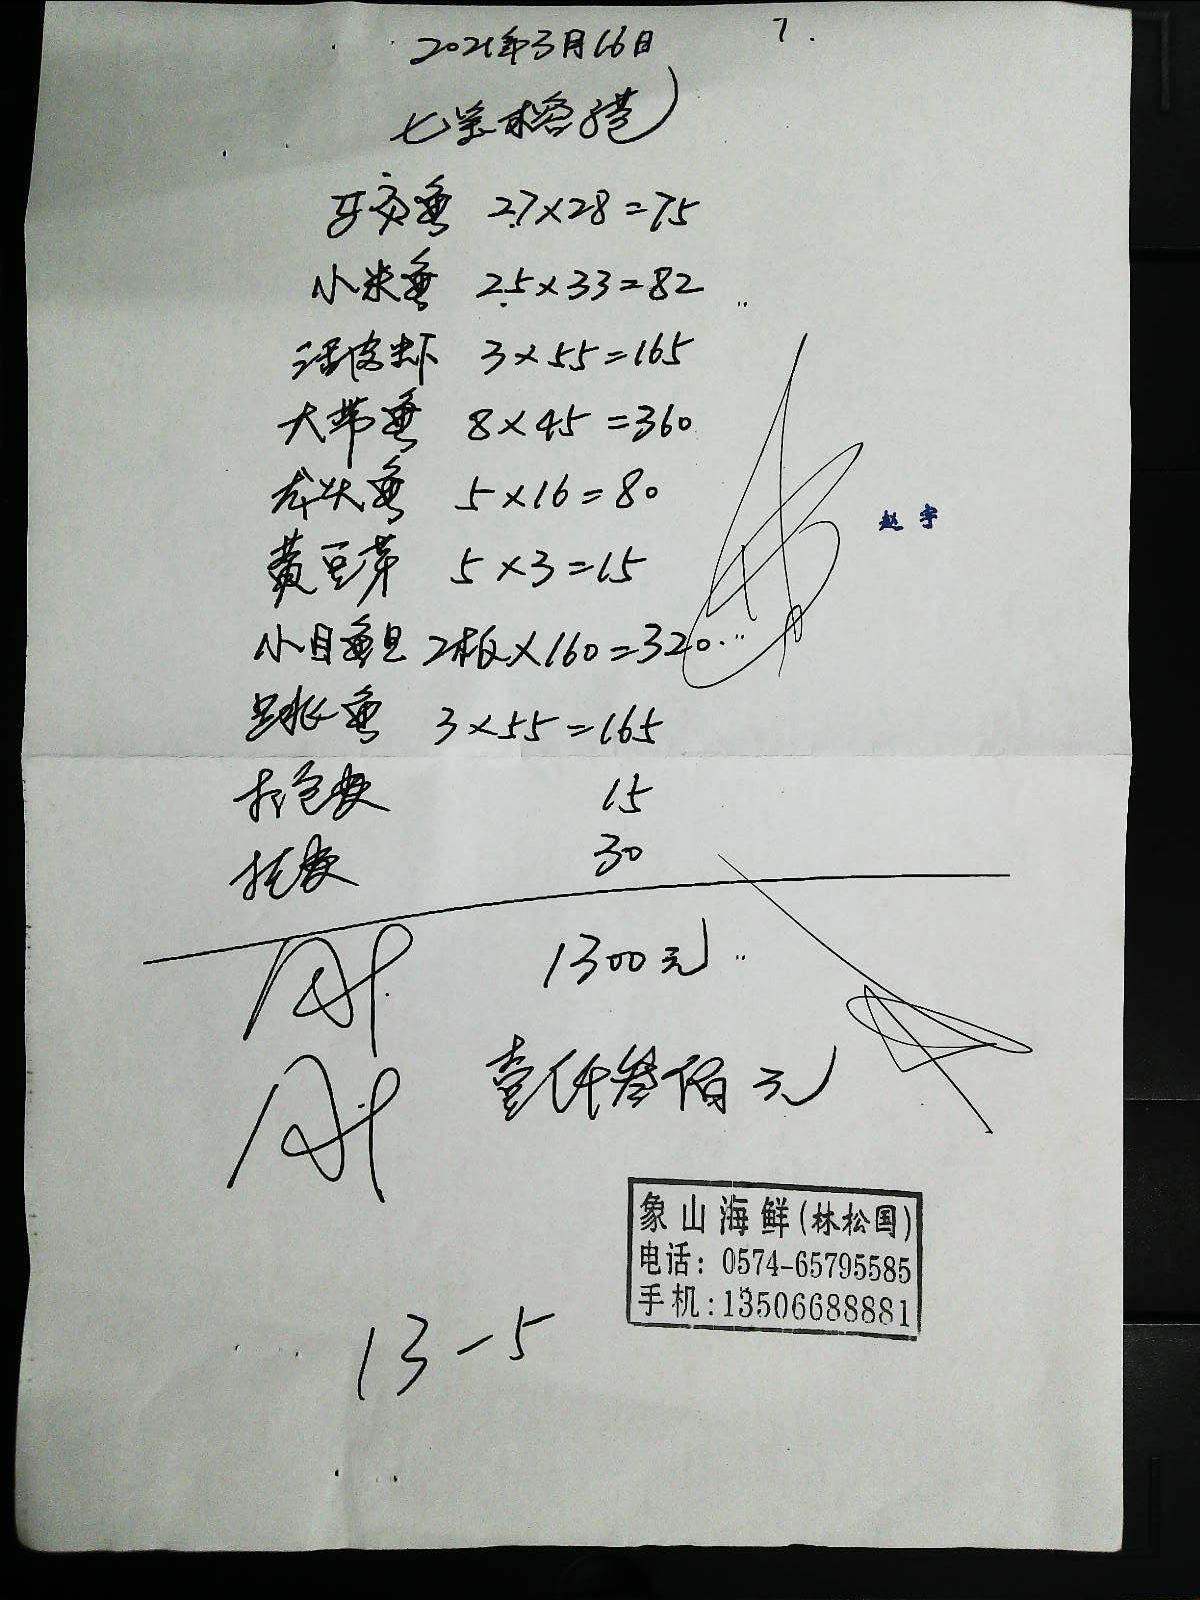 7.
2021年3月16日
七宝榕港
牙交鱼 2.7×28=75
小米鱼 2.5×33=82
活皮虾 3×55=165
大带鱼 8×45=360
龙头鱼 5×16=80
黄豆芽 5×3=15
小目鱼旦 2板×160=320
跳鱼 3×55=165
打包费 15
托费 30
1300元
壹仟叁佰元
赵宇
象山海鲜(林松国)
电话:0574-65795585
手机:13506688881
13-5